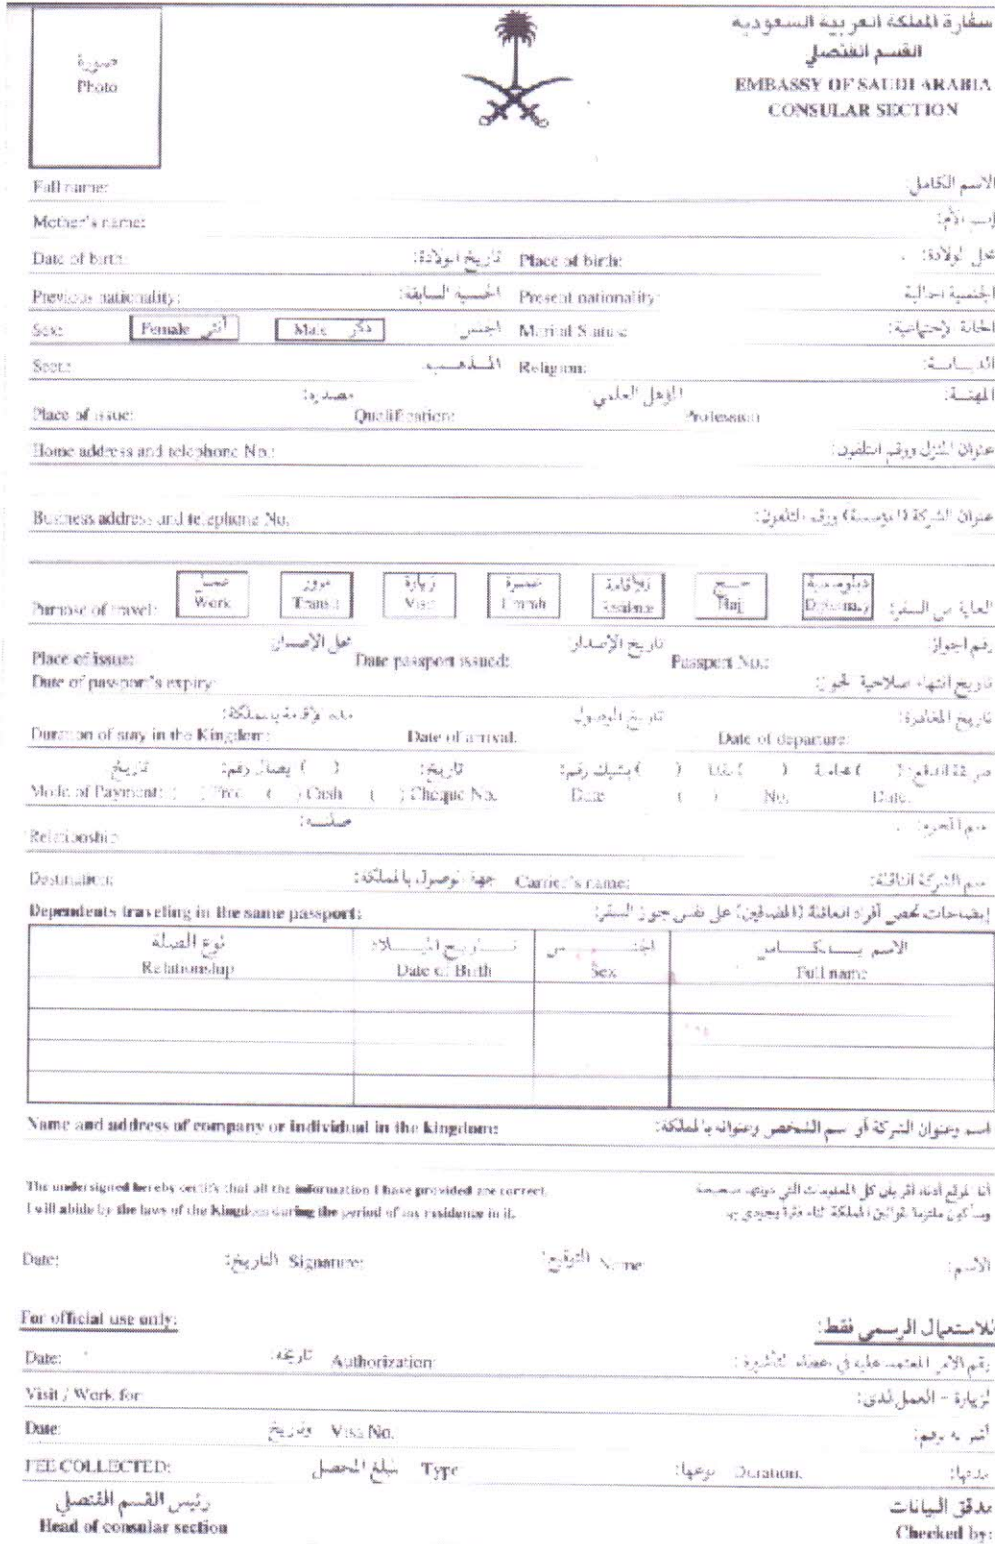 سفارة المملكة العربية السعودية
القسم القنصلي
EMBASSY OF SAUDI ARABIA
CONSULAR SECTION
صورة
Photo
Full name: الاسم الكامل:
Mother's name: إسم الأم:
Date of birth: تاريخ الولادة: Place of birth: محل الولادة:
Previous nationality: الجنسية السابقة: Present nationality: الجنسية الحالية
Sex: Female أنثى Male ذكر الجنس: Marital Status: الحالة الإجتماعية:
Sect: المذهب: Religion: الديانة:
مصدره: المؤهل العلمي المهنة:
Place of issue: Qualification: Profession
Home address and telephone No.: عنوان المنزل ورقم التلفون:
Business address and telephone No. عنوان الشركة (المؤسسة) ورقم التلفون:
عمل مرور زيارة عمرة للأقامة حج دبلوماسية
Purpose of travel: Work Transit Visit Umrah Residence Haj Diplomacy الغاية من السفر:
محل الإصدار تاريخ الإصدار: رقم الجواز:
Place of issue: Date passport issued: Passport No.:
Date of passport's expiry: تاريخ انتهاء صلاحية الجواز:
مدة الإقامة بالمملكة: تاريخ الوصول تاريخ المغادرة:
Duration of stay in the Kingdom: Date of arrival: Date of departure:
تاريخ ( ) إيصال رقم: تاريخ: ( ) بشيك رقم: ( ) نقدا ( ) مجاملة
Mode of Payment: ( ) Free ( ) Cash ( ) Cheque No. Date ( ) No. Date.
صلته: اسم المحرم:
Relationship:
Destination: جهة الوصول بالمملكة: Carrier's name: اسم الشركة الناقلة:
Dependents traveling in the same passport: إيضاحات تخص أفراد العائلة (المضافين) على نفس جواز السفر:
نوع الصلة تاريخ الميلاد الجنس الاسم بالكامل
Relationship Date of Birth Sex Full name
Name and address of company or individual in the kingdom: اسم وعنوان الشركة أو اسم الشخص وعنوانه بالمملكة:
The undersigned hereby certify that all the information I have provided are correct. أنا الموقع أدناه أقر بأن كل المعلومات التي دونتها صحيحة
I will abide by the laws of the Kingdom during the period of my residence in it. وسأكون ملتزما بقوانين المملكة أثناء فترة وجودي بها
Date: التاريخ: Signature: التوقيع: Name الاسم:
For official use only: للاستعمال الرسمي فقط:
Date: تاريخه: Authorization: رقم الأمر المعتمد عليه في إعطاء التأشيرة:
Visit / Work for: لزيارة - العمل لدى:
Date: وتاريخ Visa No. أشر له برقم:
FEE COLLECTED: مبلغ المحصل Type نوعها: Duration: مدتها:
رئيس القسم القنصلي مدقق البيانات
Head of consular section Checked by: